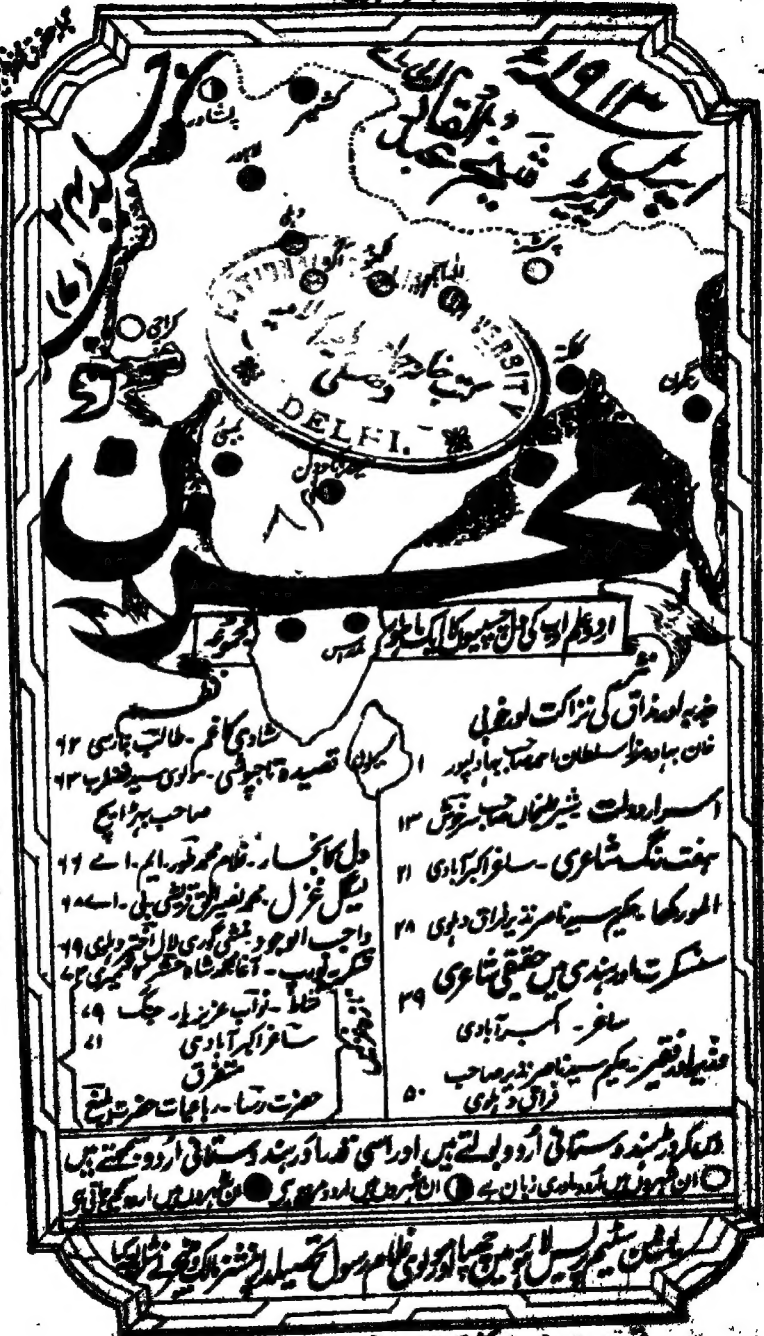 اپریل ۱۹۱۳ء
شیخ عبدالقادر
جلد ۲۴
پشاور
کشمیر
لاہور
دہلی
آگرہ
لکھنؤ
الہ آباد
پٹنہ
کراچی
NATIONAL UNIVERSITY
کتب خانہ
دہلی
DELHI.
کلکتہ
رنگون
بمبئی
حیدرآباد دکن
مخزن
اردو علم ادب کی دلچسپیوں کا ایک ماہوار مجموعہ
مدراس
سیلون
نثر
جذبہ اور مذاق کی نزاکت اور خوبی
خان بہادر مرزا سلطان احمد صاحب بہاولپور ۱
اسرار دولت بشیر علیخاں صاحب سرخوش ۱۳
ہفت رنگ شاعری - ساغر اکبرآبادی ۲۱
المورکھا - حکیم سید ناصر نذیر فراق دہلوی ۲۸
سنسکرت اور ہندی میں حقیقی شاعری ۳۹
ساغر - اکبرآبادی
فقیر - حکیم سید ناصر نذیر صاحب
فراق دہلوی ۵۰
نظم
شادی کا غم - طالب بنارسی ۶۲
قصیدہ تاجپوشی - مولوی سید
صاحب بہڑائچ ۶۳
دل کا بخار - غلام محمد طور - ایم - اے ۶۶
سنگل غزل - محمد نصیر الحق قریشی بی - اے ۶۸
واجب الوجود - منشی گوری لال اختر دہلوی ۶۹
شکریہ یورپ - آغا محمد شاہ حشر کاشمیری ۷۲
نشاط - نواب عزیز یار جنگ ۷۹
ساغر اکبرآبادی ۷۱
متفرق
حضرت رسا - رباعیات حضرت بلیغ
دس کروڑ ہندوستانی اردو بولتے ہیں اور اسی قدر اور ہندوستانی اردو سمجھتے ہیں
ان شہروں میں اردو مادری زبان ہے ان شہروں میں اردو مروج ہے ان شہروں میں اردو سمجھی جاتی ہے
سٹیم پریس لاہور میں چھپا اور مولوی غلام رسول تحصیلدار پنشنر مالک و منیجر نے شائع کیا